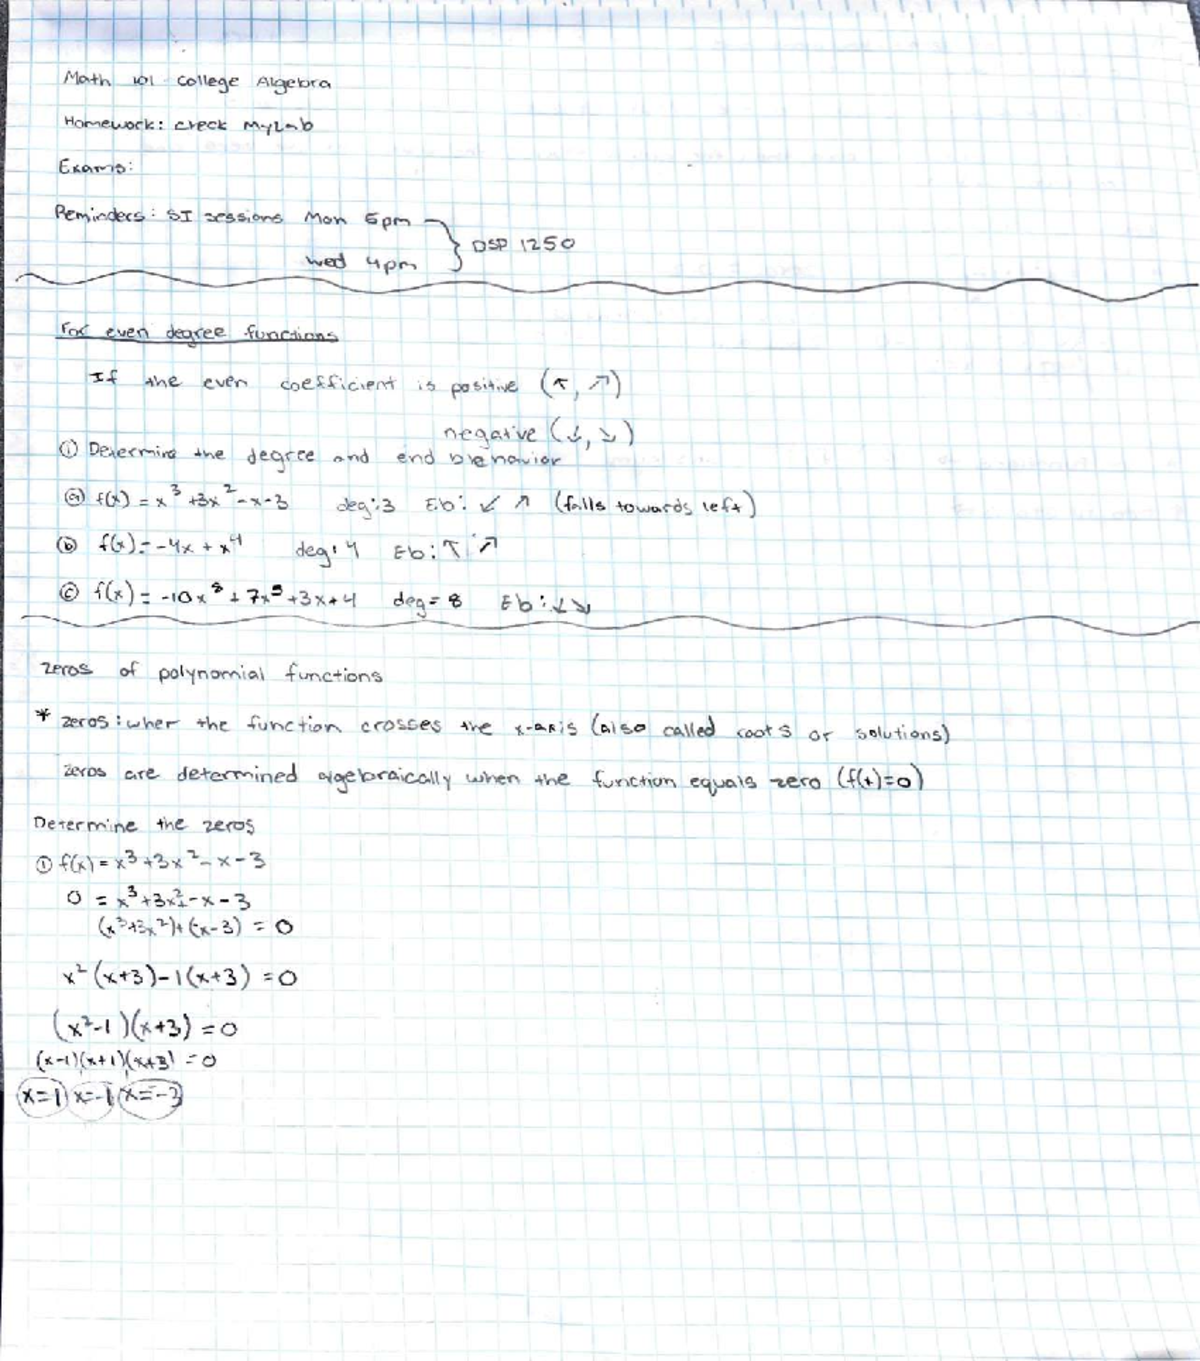 Math 101 College Algebra
Homework: check MyLab
Exams:
Reminders: SI sessions Mon 5pm
Wed 4pm } DSP 1250
For even degree functions
If the even coefficient is positive (↖, ↗)
negative (↙, ↘)
① Determine the degree and end behavior
ⓐ f(x) = x³ + 3x² - x - 3 deg: 3 Eb: ↙ ↗ (falls towards left)
ⓑ f(x) = -4x + x⁴ deg: 4 Eb: ↖ ↗
ⓒ f(x) = -10x⁸ + 7x⁵ + 3x + 4 deg = 8 Eb: ↙ ↘
zeros of polynomial functions
* zeros: wher the function crosses the x-axis (also called roots or solutions)
zeros are determined algebraically when the function equals zero (f(x)=0)
Determine the zeros
① f(x) = x³ + 3x² - x - 3
0 = x³ + 3x² - x - 3
(x³+3x²)+(-x-3) = 0
x² (x+3) - 1(x+3) = 0
(x²-1)(x+3) = 0
(x-1)(x+1)(x+3) = 0
x=1 x=-1 x=-3